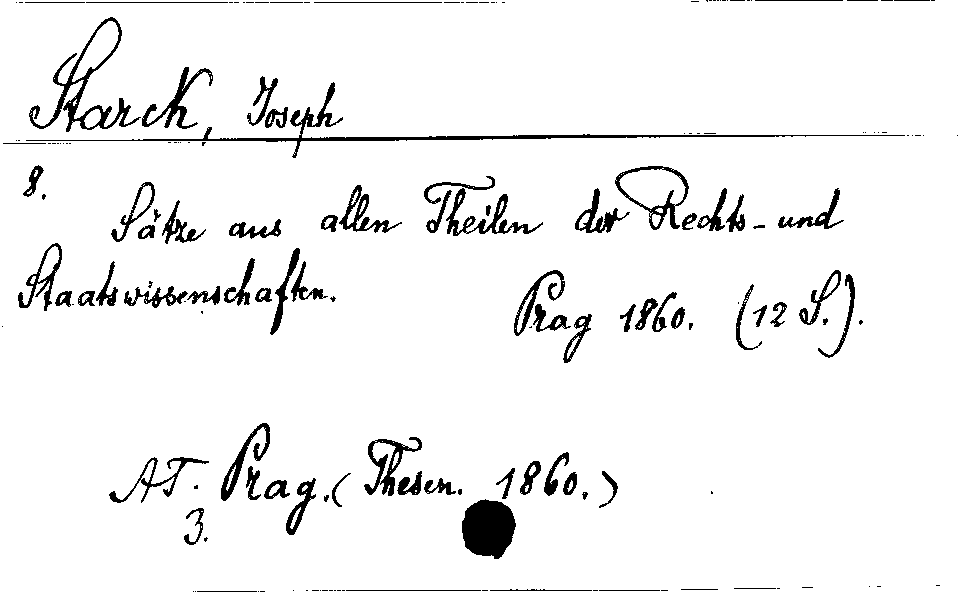 Starck, Joseph
8.
Sätze aus allen Theilen der Rechts- und
Staatswissenschaften.
Prag 1860. (12 S.).
AT. Prag. (Thesen. 1860.)
3.